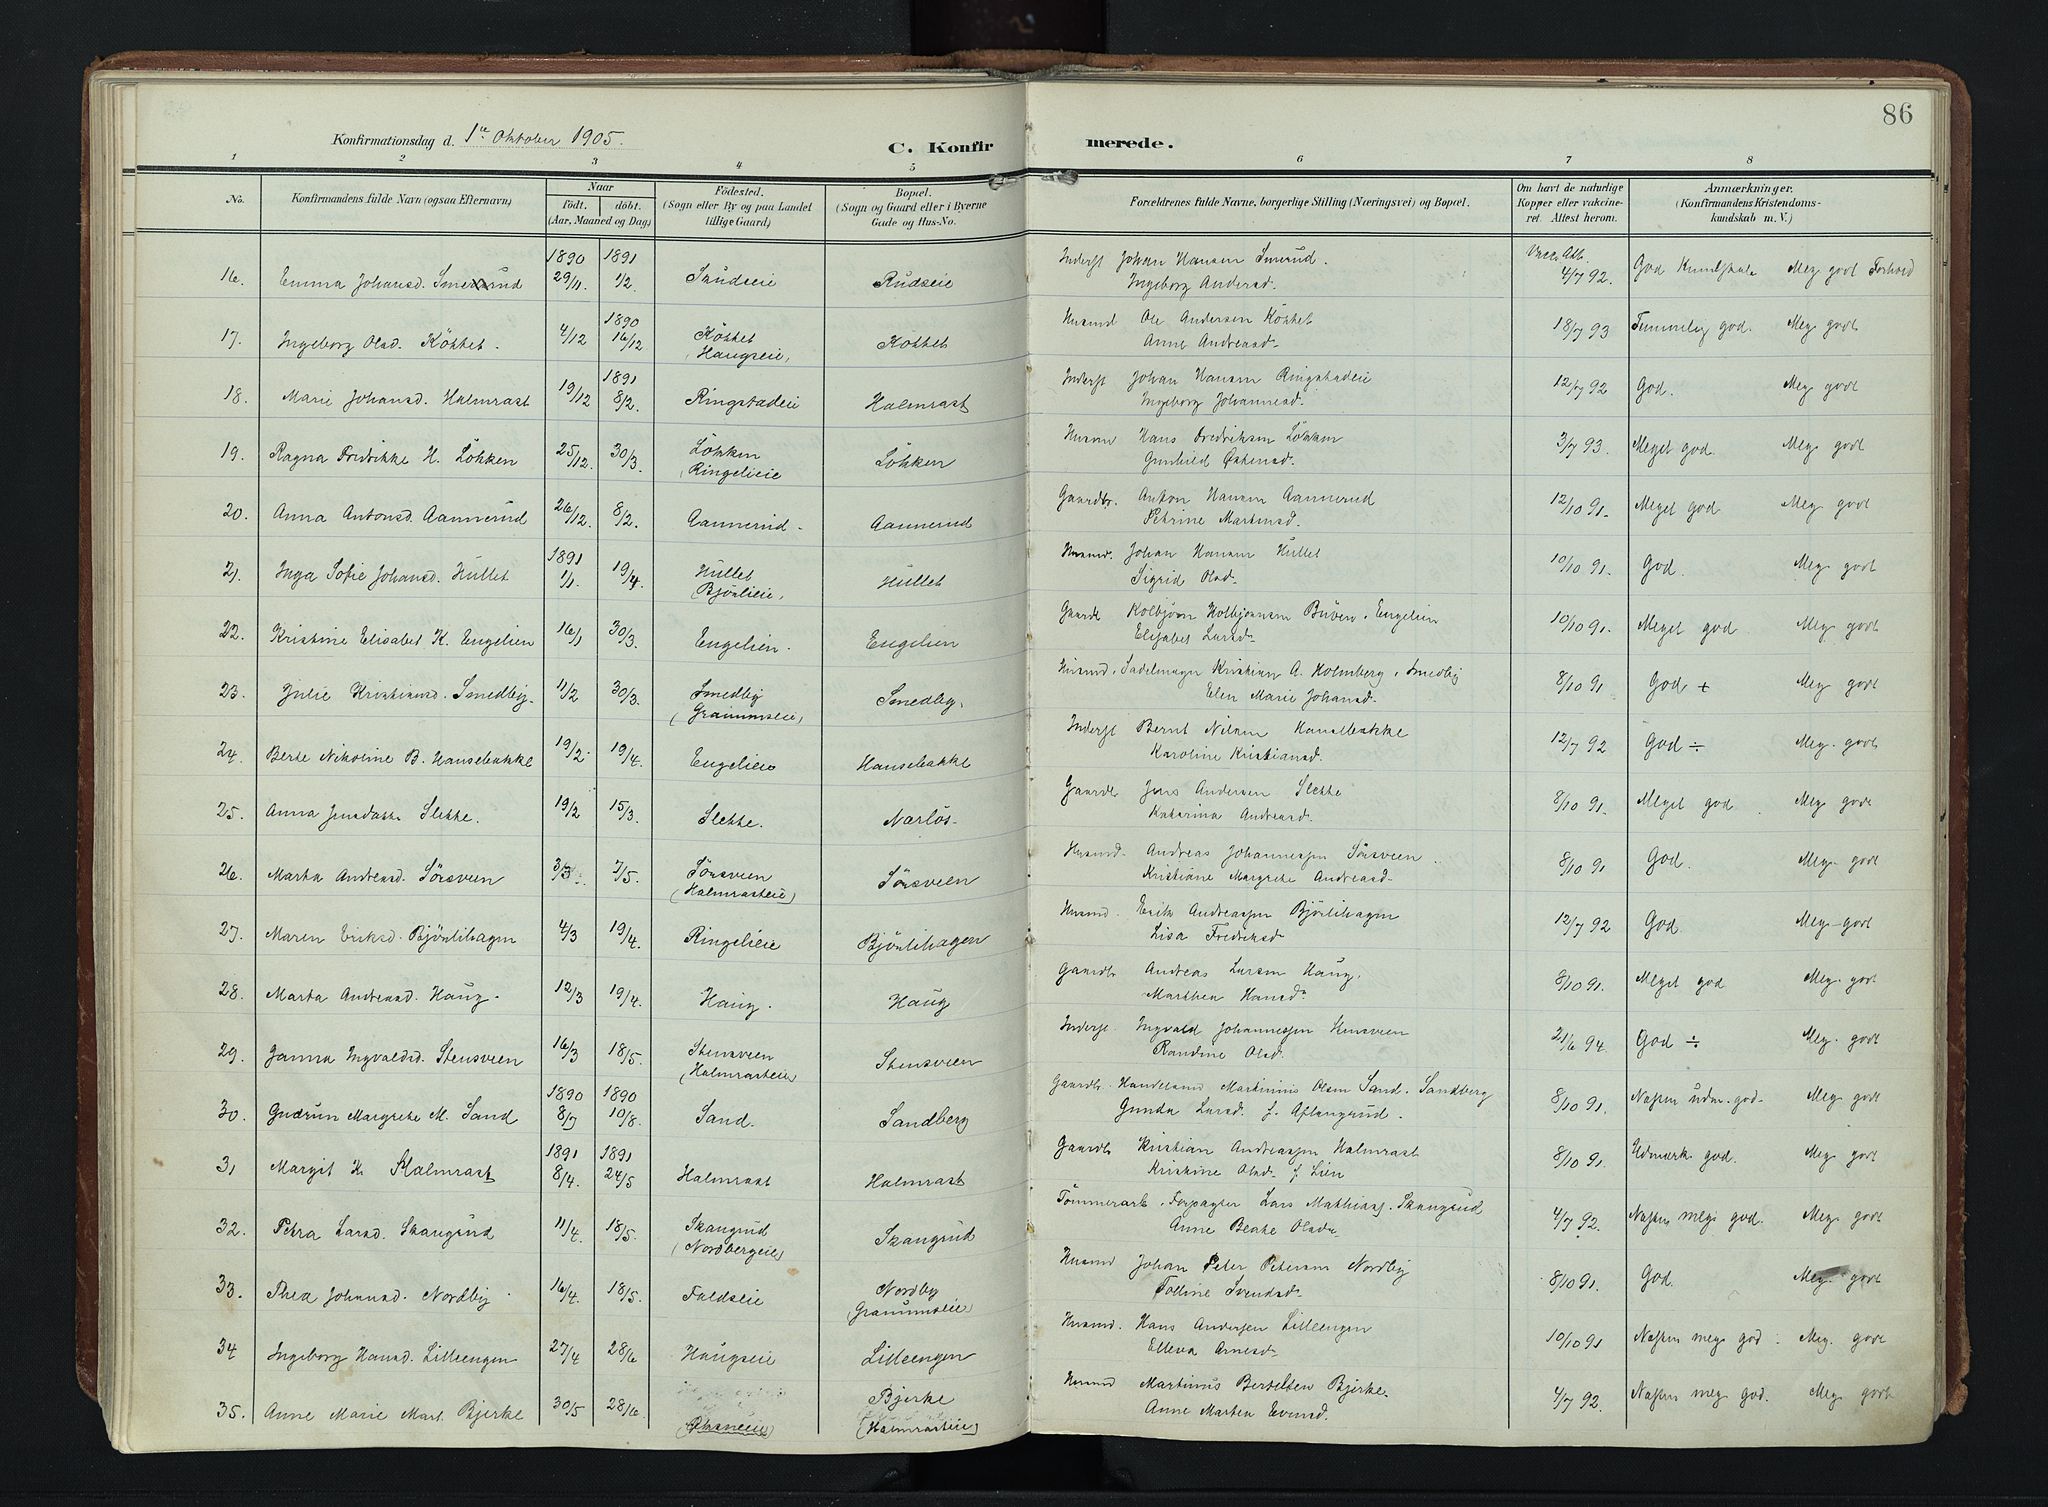 86
Konfirmationsdag d. 1ste Oktober 1905.
C. Konfirmerede.
1 2 3 4 5 6 7 8
No. Konfirmandens fulde Navn (ogsaa Efternavn) Naar født. døbt. (Aar, Maaned og Dag) Fødested. (Sogn eller By og paa Landet tillige Gaard) Bopæl. (Sogn og Gaard eller i Byerne Gade og Hus-No. Forældrenes fulde Navne, borgerlige Stilling (Næringsvei) og Bopæl. Om havt de naturlige Kopper eller vakcineret. Attest herom. Anmærkninger. (Konfirmandens Kristendomskundskab m. V.)
1890 1891 Inderst Johan Hansen Smerud. Vacc. Att.
16. Emma Johansd. Smerud 29/11 1/2 Rudseie Ingeborg Andersd. 4/7 92. God Kundskab Meg godt Forhold
1890 Husmd Ole Andersen Kökket
17. Ingeborg Olsd. Kökket. 4/12 16/12 Kökket (Haugseie) Kökket Anne Andreasd. 18/7 93 Temmelig god. Meg godt
1891 Inderst Johan Hansen Ringstadeie
18. Marie Johansd. Halmrast 19/12 8/2. Ringstadeie Halmrast Ingeborg Johannesd. 12/7 92 God. Meg godt
Husmd Hans Fredriksen Lökken
19. Ragna Fredrikke H. Lökken 25/12. 30/3. Lökken (Ringelieie Lökken Gunhild Östensd. 3/7 93. Meget god. Meg godt
Gaardbr. Anton Hansen Aannerud
20. Anna Antonsd. Aannerud 26/12. 8/2. Aannerud. Aannerud Petrine Martinsd. 12/10 91. Meget god Meg godt
1891 Husmd. Johan Hansen Hullet
21. Inga Sofie Johansd. Hullet 1/1 19/4. Hullet (Bjönlieie) Hullet Sigrid Olsd. 10/10 91. God. Meg godt
Gaardb Kolbjörn Kolbjörnsen Buven. Engelien
22. Kristine Elisabet K. Engelien 16/1 30/3. Engelien. Engelien Elisabet Larsd. 10/10 91. Meget god Meg godt
Husmd. Sadelmager Kristian A. Holmberg. Smedby
23. Julie Kristiansd. Smedby. 11/2 30/3. Smedby (Granumseie) Smedby. Elen Marie Johansd. 8/10 91 God + Meg godt
Inderst Bernt Nilsen Hanselbakke
24. Berte Nikoline B. Hanselbakke 19/2. 19/4. Engelieie Hanselbakke Karoline Kristiansd. 12/7 92 God ÷ Meg. godt
Gaardb Jens Andersen Slette
25. Anna Slette. 19/2 15/3 Slette. Narlös. Katarina Andreasd. 8/10 91. Meget god Meg godt
Husmd. Andreas Johannessen Sörsveen
26. Marta Andreasd. Sörsveen 3/3. 7/5. Sörsveen (Halmrasteie) Sörsveen Kristiane Margrete Andreasd. 8/10 91 God. Meg. godt
Husmd. Erik Andreassen Bjönlihagen
27. Maren Eriksd. Bjönlihagen 4/3 19/4. Ringelieie Bjönlihagen Lisa Fredriksd 12/7 92 God. Meg. godt
Gaardb Andreas Larsen Haug.
28. Marta Andreasd. Haug. 12/3 19/4. Haug. Haug Marthea Hansd. 8/10 91. Meget god Meg. godt
Inderst. Ingvald Johannessen Stensveen
29. Janna Ingvaldsd. Stensveen 16/3 18/5. Stensveen (Halmrasteie) Stensveen Randine Olsd. 21/6 94. God ÷ Meg. godt
1890 1890 Gaardb. Handelsmd Martinius Olsen Sand. Sandberg
30. Gudrun Margrete M. Sand 8/7 10/8. Sand. Sandberg Gunda Larsd. f. Aflangrud. 8/10 91. Næsten udm. god. Meg. godt
1891 1891 Gaardb Kristian Andreassen Halmrast
31 Margit K. Halmrast 8/4. 24/5 Halmrast Halmrast Kristine Olsd. f. Lien 8/10 91. Udmærk god. Meg godt
Tömmerarb. Forpagter Lars Mathiass. Skangrud
32. Petra Larsd. Skangrud 11/4. 18/5. Skangrud (Nordbergeie) Skangrud Anne Beate Olsd. 4/7 92. Næsten meg. god. Meg. godt
Husmd Johan Peter Petersen Nordby
33. Thea Johansd. Nordby 16/4. 18/5. Faldseie Nordby (Granumseie) Tolline Svendsd. 8/10 91. God. Meg. godt
Husmd. Hans Andersen Lilleengen
34 Ingeborg Hansd. Lilleengen 27/4 28/6 Haugseie Lilleengen Elleva Arnesd. 10/10 91 Næsten meg god. Meg. godt
Husmd Martinus Bertelsen Bjerke.
35. Anne Marie Mart. Bjerke 30/5 28/6. Bjerke (Halmrasteie) Anne Martea Evensd. 4/7 92. Næsten meg god. Meg. godt